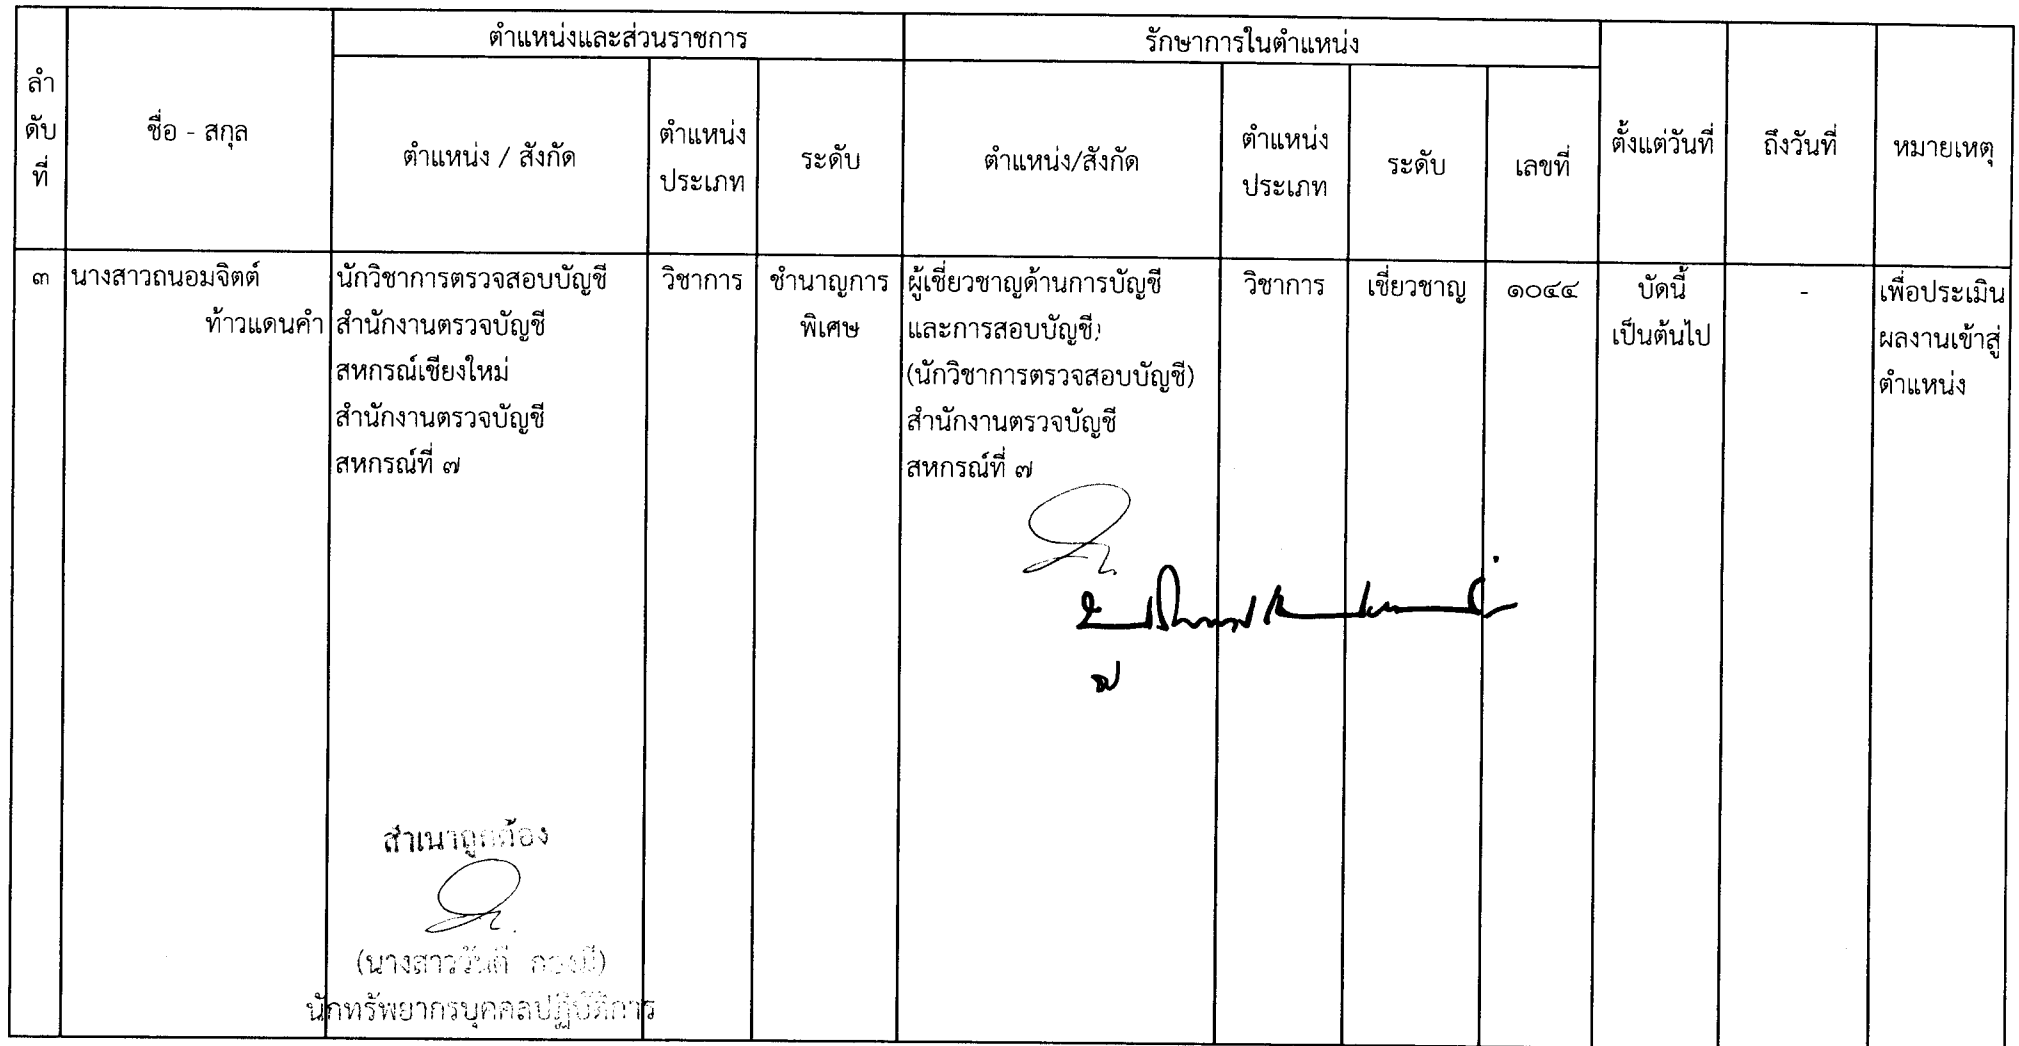 ลำ
ดับ
ที่
ชื่อ - สกุล
ตำแหน่งและส่วนราชการ
ตำแหน่ง / สังกัด
ตำแหน่ง
ประเภท
ระดับ
รักษาการในตำแหน่ง
ตำแหน่ง/สังกัด
ตำแหน่ง
ประเภท
ระดับ
เลขที่
ตั้งแต่วันที่
ถึงวันที่
หมายเหตุ
๓
นางสาวถนอมจิตต์
ท้าวแดนคำ
นักวิชาการตรวจสอบบัญชี
สำนักงานตรวจบัญชี
สหกรณ์เชียงใหม่
สำนักงานตรวจบัญชี
สหกรณ์ที่ ๗
วิชาการ
ชำนาญการ
พิเศษ
ผู้เชี่ยวชาญด้านการบัญชี
และการสอบบัญชี
(นักวิชาการตรวจสอบบัญชี)
สำนักงานตรวจบัญชี
สหกรณ์ที่ ๗
วิชาการ
เชี่ยวชาญ
๑๐๔๔
บัดนี้
เป็นต้นไป
-
เพื่อประเมิน
ผลงานเข้าสู่
ตำแหน่ง
สำเนาถูกต้อง
นักทรัพยากรบุคคลปฏิบัติการ